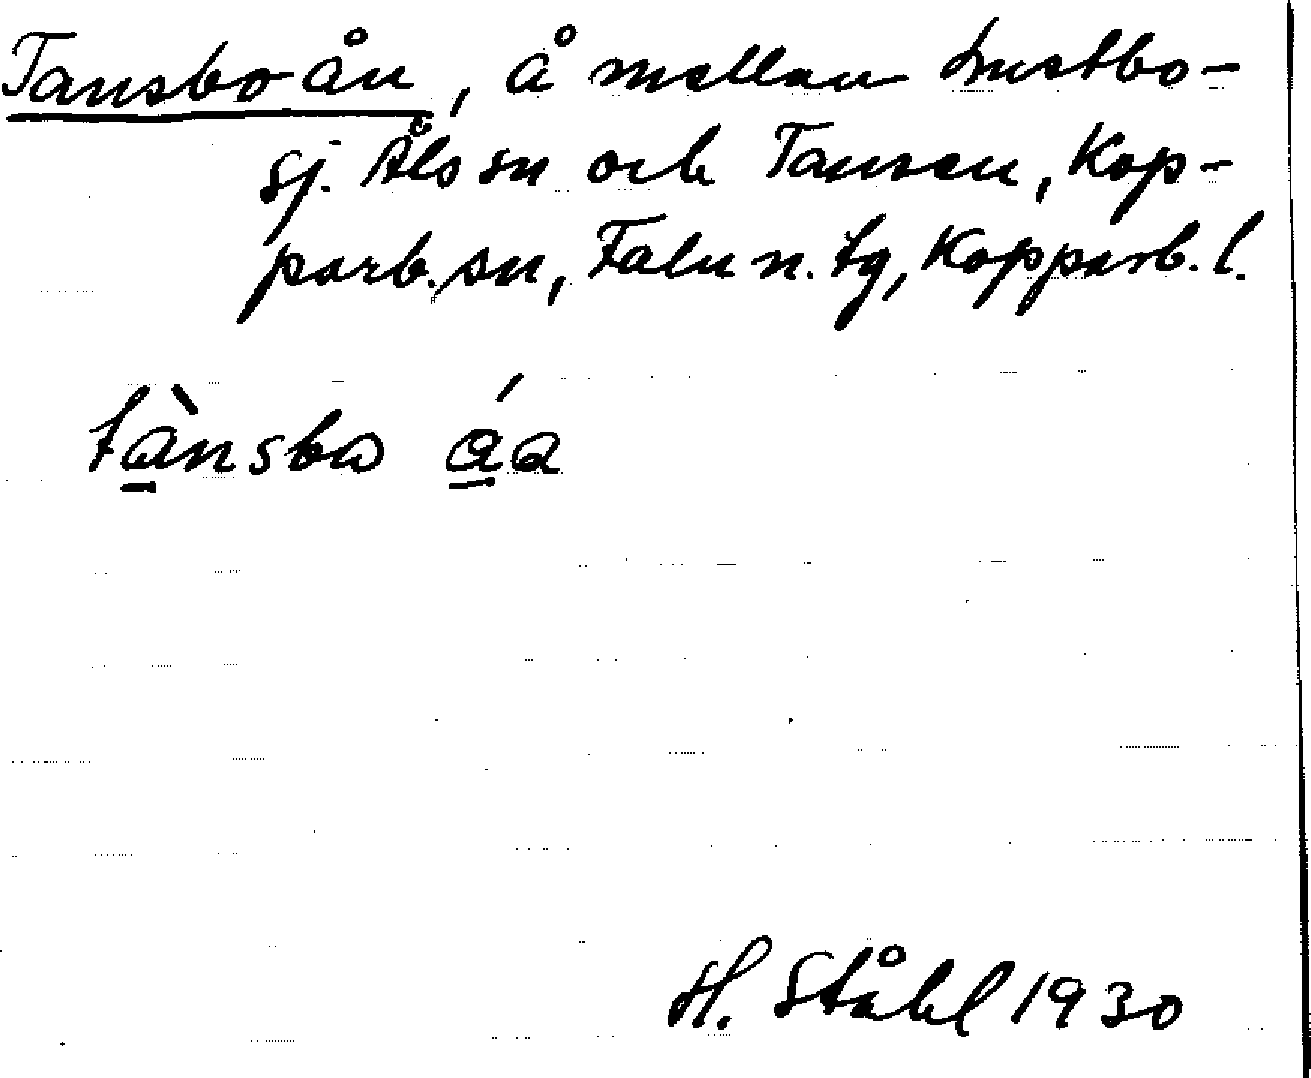 Tansboån, å mellan Lustbo-
sj. Åls sn och Tansen, Kop-
parb. sn, Falu n. tg, Kopparb. l.
tànsbω áa
H. Ståhl 1930